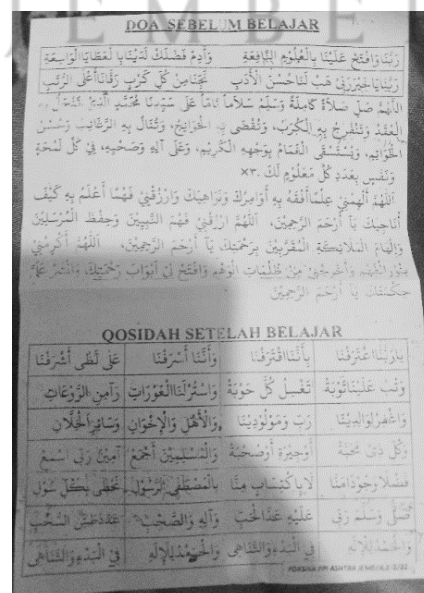 E M B E
DOA SEBELUM BELAJAR
رَبَّنَا وَافْتَحْ عَلَيْنَا بِالْعُلُومِ النَّافِعَةِ وَأَدِمْ فَضْلَكَ لَدَيْنَا بِالْعَطَايَا الْوَاسِعَةِ
رَبَّنَا يَا خَيْرَ رَبِّيْ هَبْ لَنَا حُسْنَ الْأَدَبِ نَجِّنَا مِنْ كُلِّ كَرْبٍ رَقِّنَا أَعْلَى الرُّتَبِ
اللَّهُمَّ صَلِّ صَلَاةً كَامِلَةً وَسَلِّمْ سَلَامًا تَامًّا عَلَى سَيِّدِنَا مُحَمَّدٍ الَّذِيْ تَنْحَلُّ بِهِ
الْعُقَدُ وَتَنْفَرِجُ بِهِ الْكُرَبُ، وَتُقْضَى بِهِ الْحَوَائِجُ، وَتُنَالُ بِهِ الرَّغَائِبُ وَحُسْنُ
الْخَوَاتِمِ، وَيُسْتَسْقَى الْغَمَامُ بِوَجْهِهِ الْكَرِيْمِ، وَعَلَى آلِهِ وَصَحْبِهِ، فِيْ كُلِّ لَمْحَةٍ
وَنَفَسٍ بِعَدَدِ كُلِّ مَعْلُوْمٍ لَكَ ×٣
اَللَّهُمَّ أَلْهِمْنِيْ عِلْمًا أَفْقَهُ بِهِ أَوَامِرَكَ وَنَوَاهِيَكَ وَارْزُقْنِيْ فَهْمًا أَعْلَمُ بِهِ كَيْفَ
أُنَاجِيْكَ يَا أَرْحَمَ الرَّاحِمِيْنَ، اَللَّهُمَّ ارْزُقْنِيْ فَهْمَ النَّبِيِّيْنَ وَحِفْظَ الْمُرْسَلِيْنَ
وَإِلْهَامَ الْمَلَائِكَةِ الْمُقَرَّبِيْنَ بِرَحْمَتِكَ يَآ أَرْحَمَ الرَّاحِمِيْنَ، اَللَّهُمَّ أَكْرِمْنِيْ
بِنُوْرِ الْفَهْمِ وَأَخْرِجْنِيْ مِنْ ظُلُمَاتِ الْوَهْمِ وَافْتَحْ لِيْ أَبْوَابَ رَحْمَتِكَ، وَانْشُرْ عَلَيَّ
حِكْمَتَكَ يَا أَرْحَمَ الرَّاحِمِيْنَ
QOSIDAH SETELAH BELAJAR
يَا رَبَّنَا اعْتَرَفْنَا بِأَنَّنَا اقْتَرَفْنَا وَأَنَّنَا أَسْرَفْنَا عَلَى لَظَى أَشْرَفْنَا
وَتُبْ عَلَيْنَا تَوْبَةً تَغْسِلُ كُلَّ حَوْبَةٍ وَاسْتُرْ لَنَا الْعَوْرَاتِ وَآمِنِ الرَّوْعَاتِ
وَاغْفِرْ لِوَالِدِيْنَا رَبِّ وَمَوْلُوْدِيْنَا وَالْأَهْلِ وَالْإِخْوَانِ وَسَائِرِ الْخِلَّانِ
وَكُلِّ ذِيْ مَحَبَّةٍ أَوْ جِيْرَةٍ أَوْ صُحْبَةٍ وَالْمُسْلِمِيْنَ أَجْمَعْ آمِيْنَ رَبِّي اسْمَعْ
فَضْلًا وَجُوْدًا مِنَّا لَا بِاكْتِسَابٍ مِنَّا بِالْمُصْطَفَى الرَّسُوْلِ نَحْظَى بِكُلِّ سُوْلِ
صَلَّى وَسَلَّمَ رَبِّي عَلَيْهِ عَدَّ الْحَبِّ وَآلِهِ وَالصَّحْبِ عِدَادَ طَشِّ السُّحْبِ
وَالْحَمْدُ لِلْإِلَهِ فِي الْبَدْءِ وَالتَّنَاهِي وَالْحَمْدُ لِلْإِلَهِ فِي الْبَدْءِ وَالتَّنَاهِي